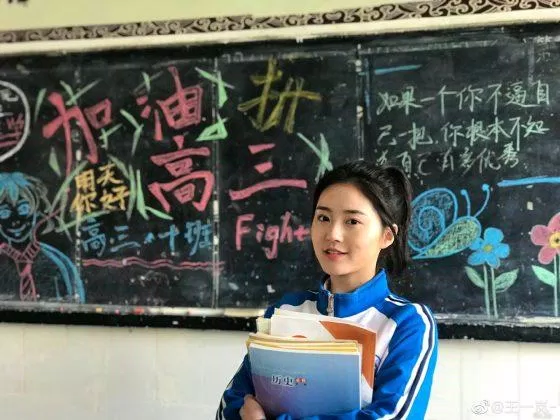 加油 拼
高三
明天
你好
高三·十班
Fight
如果一个你不逼自
己一把,你根本不知
多优秀
历史
@王一岚-